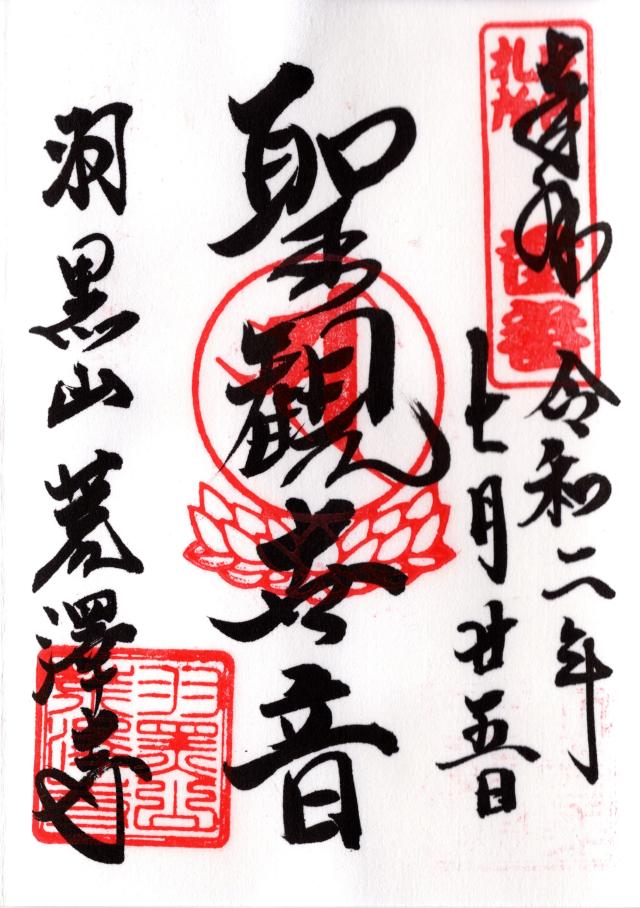 奉拝
令和二年
七月廿五日
聖観世音
羽黒山荒澤寺
札所
壱番